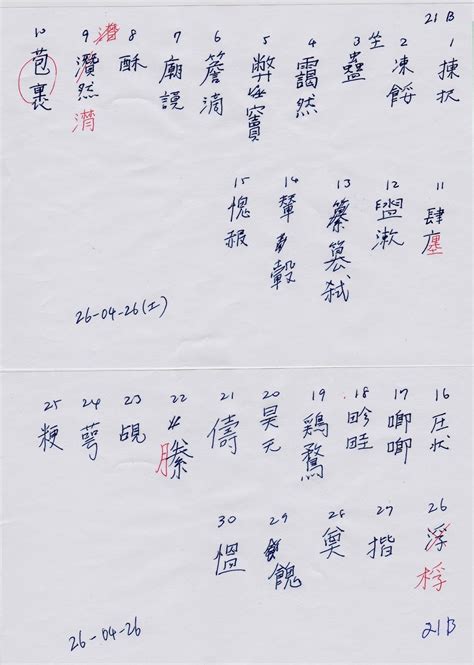 21 B
1 揀択
2 凍餒
坐
3 蠱
4 靄然
5 弊竇
6 簷滴
7 廟謨
8 酥
9 然
潸
10 苞裹
11 肆廛
12 盥漱
13 簒弑
14 輦轂
15 愧赧
26-04-26(エ)
16 圧状
17 喞喞
18 畛畦
19 鶏鶩
20 昊元
21 儔
22 滕
23 覘
24 萼
25 粳
26 浮
桴
27 揩
28 奠
29 餽
30 慍
26-04-26
21B